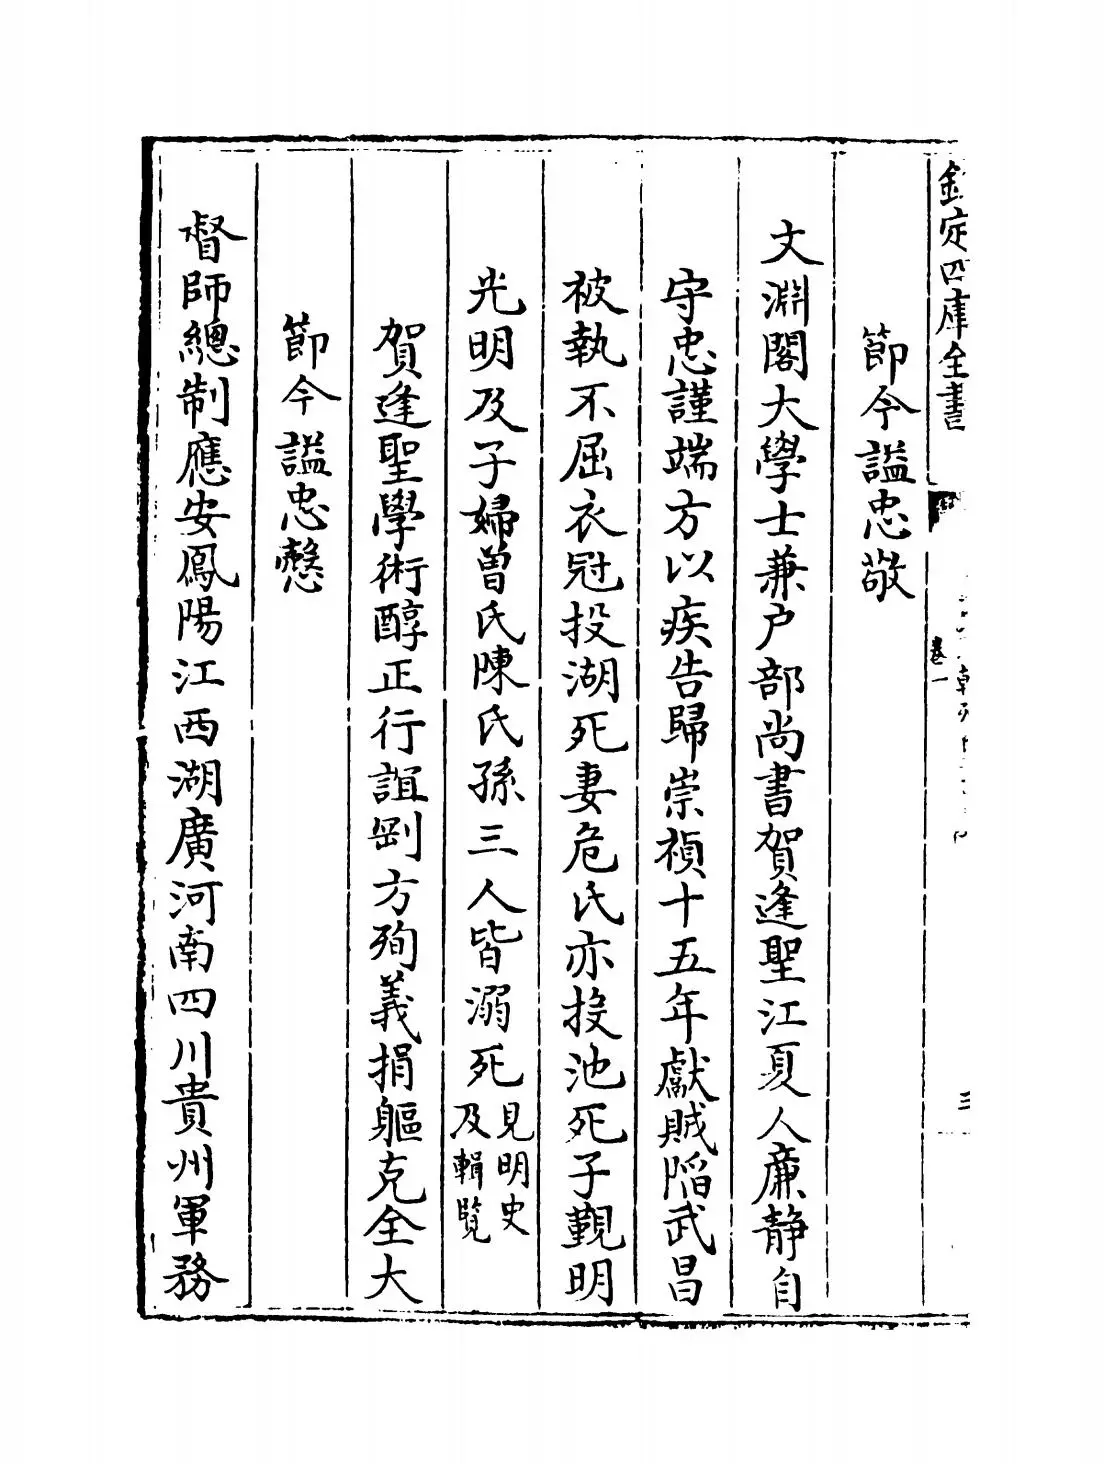 欽定四庫全書
卷一
三
節今謚忠敬
文淵閣大學士兼户部尚書賀逢聖江夏人廉靜自
守忠謹端方以疾告歸崇禎十五年獻賊陷武昌
被執不屈衣冠投湖死妻危氏亦投池死子覲明
光明及子婦曾氏陳氏孫三人皆溺死見明史
及輯覽
賀逢聖學術醇正行誼剛方殉義捐軀克全大
節今謚忠㦤
督師總制應安鳳陽江西湖廣河南四川貴州軍務